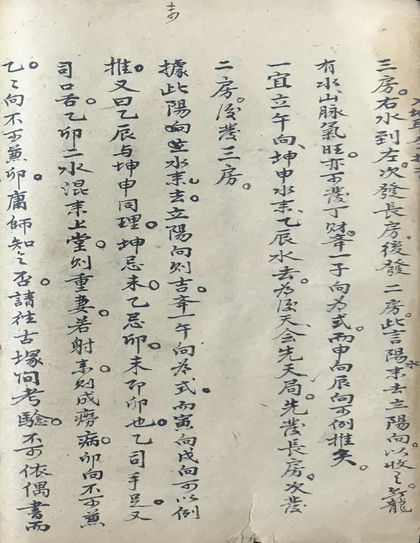 三房。右水到左。次發長房。後發二房。此言陽水來去立陽向以收之。若龍
有水、山脉氣旺。亦可發丁財。幸一子向為式。而申向辰向可例推矣。
一宜立午向、坤申水来、乙辰水去。為後天会先天局。先發長房、次發
二房。後發三房。
據此陽向竝水来去立陽向則吉。幸一午向為式。而寅向戌向可以例
推。又曰乙辰与坤申同理。坤忌未。乙忌卯。未即卯也。乙司手足。又
司口舌。乙卯二水混来上堂。則重妻。若射来則成癆病。卯向不可兼
乙。乙向不可兼卯。庸師知之否。請往古塚間考驗。不可依偶書而